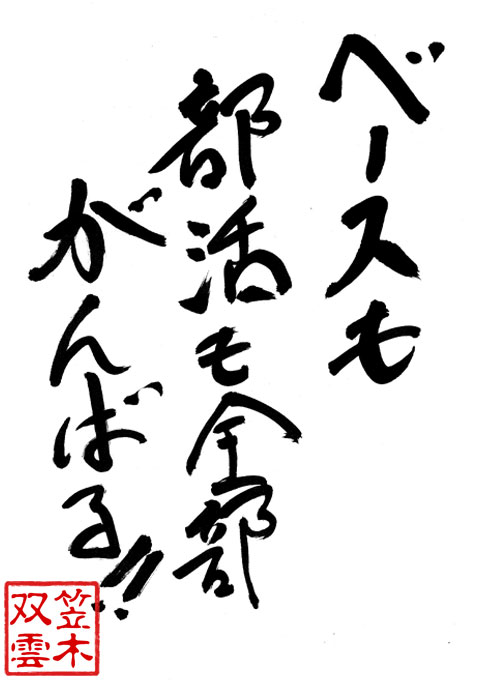 ベースも
部活も全部
がんばる!!
笠木
双雲